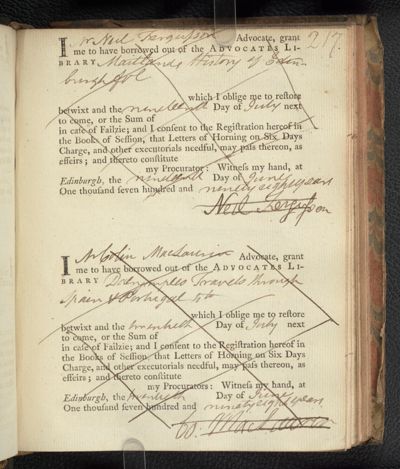 217.
I Mr Neil Fergusson Advocate, grant
me to have borrowed out of the ADVOCATES LI-
BRARY Maitlands History of Edin-
burgh fol
which I oblige me to restore
betwixt and the nineteenth Day of July next
to come, or the Sum of
in case of Failzie; and I consent to the Registration hereof in
the Books of Session, that Letters of Horning on Six Days
Charge, and other executorials needful, may pass thereon, as
effeirs; and thereto constitute
my Procurator: Witness my hand, at
Edinburgh, the nineteenth Day of June
One thousand seven hundred and ninety eight years
Neil Ferguſson
I Mr Colin Maclaurin Advocate, grant
me to have borrowed out of the ADVOCATES LI-
BRARY Dalrymples Travels through
Spain & Portugal 4to
which I oblige me to restore
betwixt and the twentieth Day of July next
to come, or the Sum of
in case of Failzie; and I consent to the Registration hereof in
the Books of Session, that Letters of Horning on Six Days
Charge, and other executorials needful, may pass thereon, as
effeirs; and thereto constitute
my Procurators: Witness my hand, at
Edinburgh, the twentieth Day of June
One thousand seven hundred and ninety eight years
Co. MacLaurin